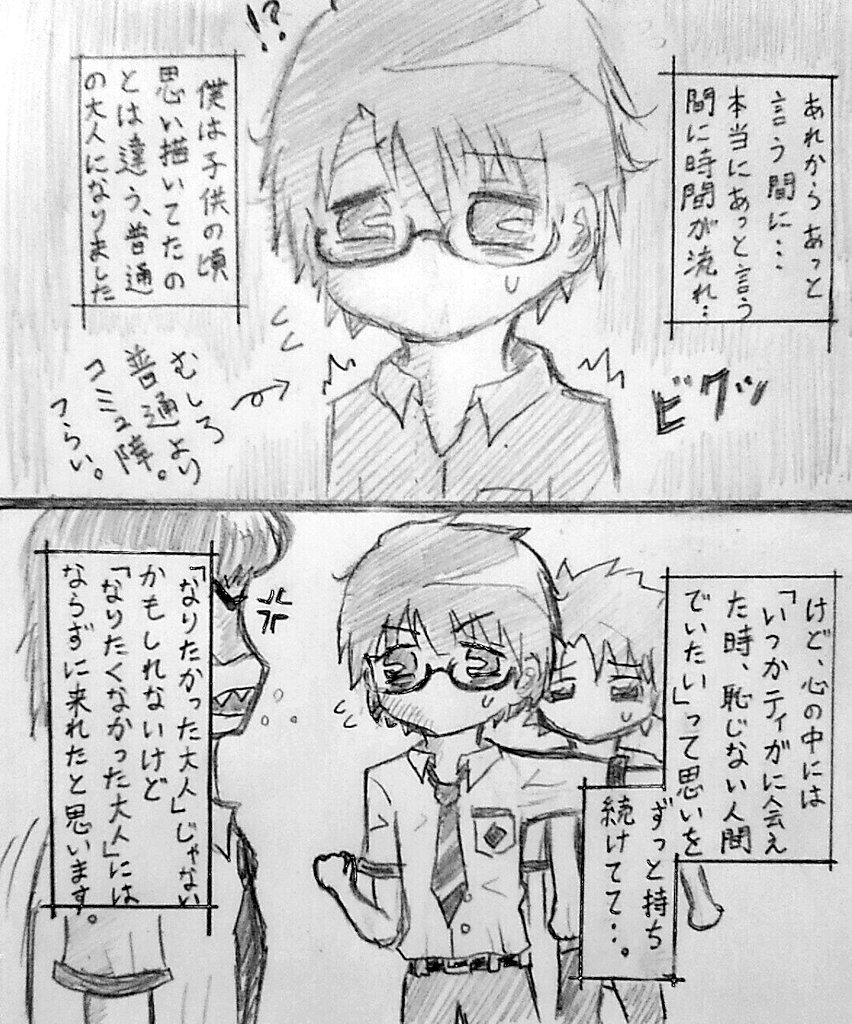 あれからあっと
言う間に…
本当にあっと言う
間に時間が流れ…
!?
僕は子供の頃
思い描いてたの
とは違う、普通
の大人になりました
ビクッ
むしろ
普通より
コミュ障。
つらい。
けど、心の中には
「いつかティガに会え
た時、恥じない人間
でいたい」って思いを
ずっと持ち
続けてて…。
「なりたかった大人」じゃない
かもしれないけど
「なりたくなかった大人」には
ならずに来れたと思います。